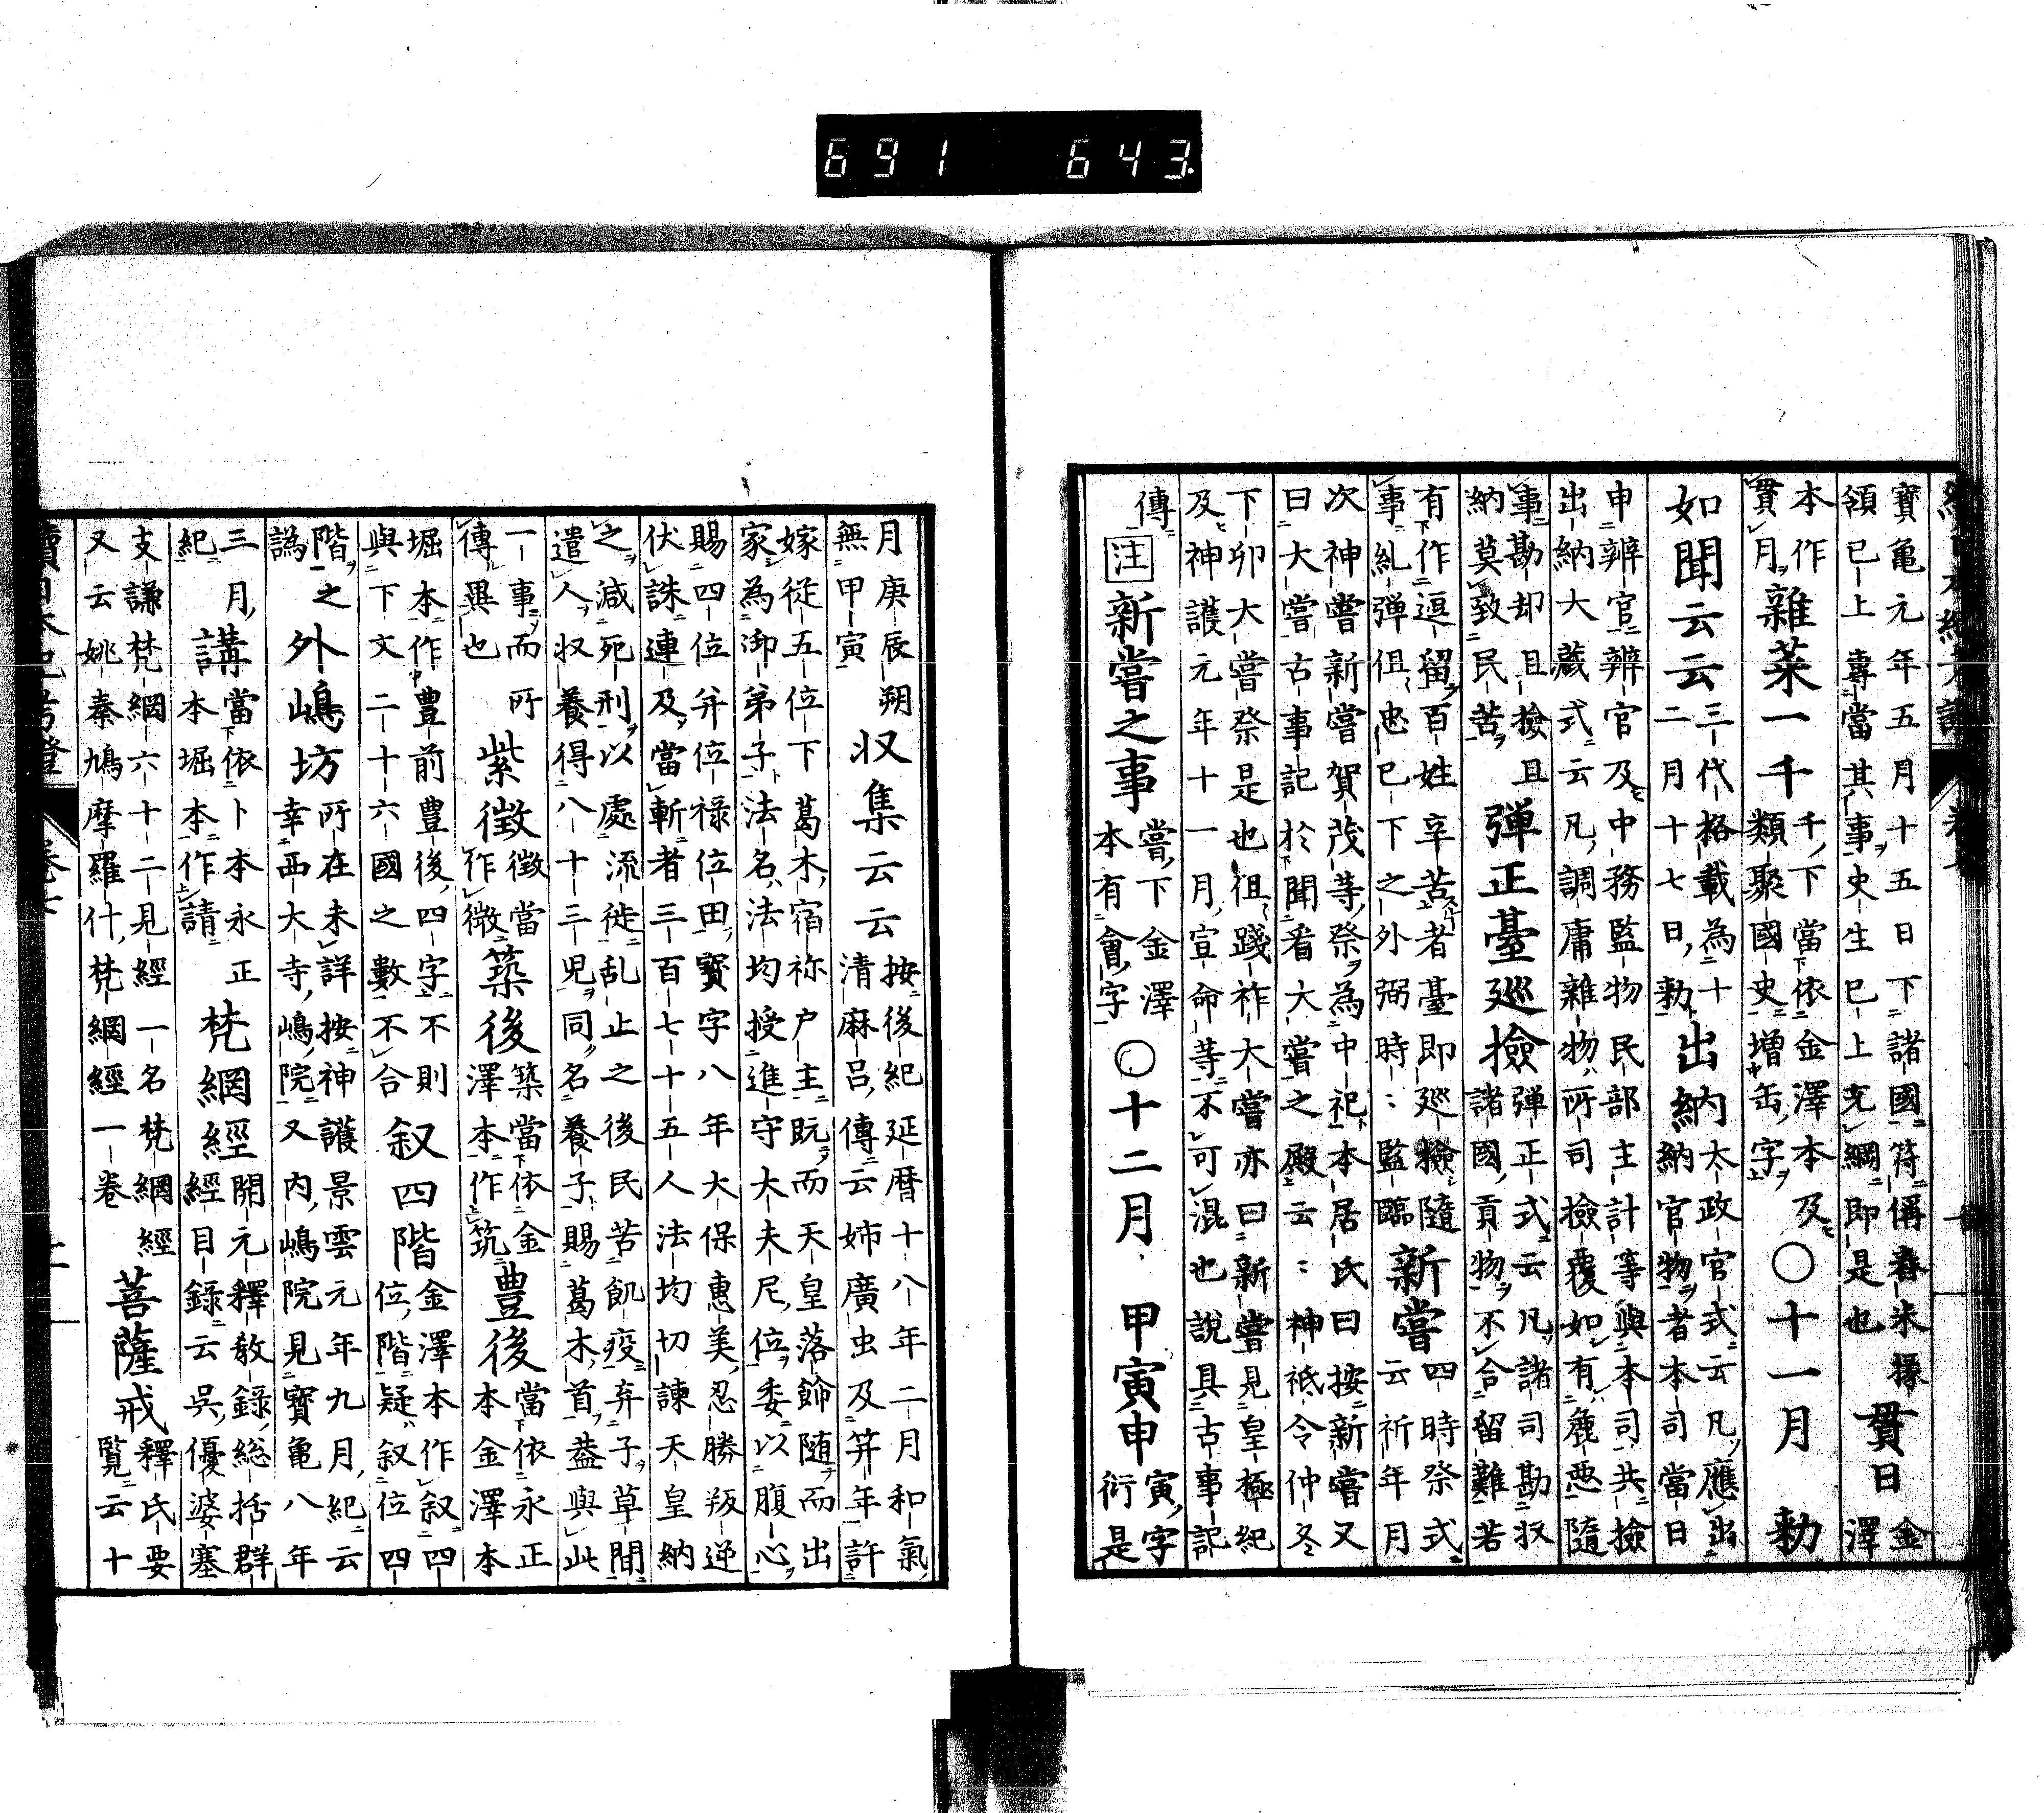 691 643
寶亀元年五月十五日下諸國符偁舂米掾
領已上專當其事史生已上充綱即是也
貫日
金
澤
本作
貫月
雜菜一千
千下當依金澤本及
類聚國史増缶字
○十一月 勅
如聞云云
三代格載為十
二月十七日勅
出納
太政官式云凡應出
納官物者本司當日
申辨官辨官及中務監物民部主計等與本司共檢
出納大蔵式云凡調庸雜物所司檢覆如有麁悪隨
事勘却且檢且
納莫致民苦
弾正臺巡檢
弾正式云凡諸司勘収
諸國貢物不合留難若
有作逗留百姓辛苦者臺即巡檢隨
事糺弾但忠已下之外弼時〻監臨
新嘗
四時祭式
云祈年月
次神嘗新嘗賀茂等祭為中祀本居氏曰按新嘗又
曰大嘗古事記於聞看大嘗之殿云〻神祇令仲冬
下卯大嘗祭是也但踐祚大嘗亦曰新嘗見皇極紀
及神護元年十一月宣命等不可混也說具古事記
傳
注
新嘗之事
嘗下金澤
本有會字
○十二月 甲寅申
寅字
衍是
月庚辰朔
無甲寅
収集云云
按後紀延暦十八年二月和氣
清麻呂傳云姉廣虫及笄年許
嫁従五位下葛木宿祢户主既而天皇落餝随而出
家為御弟子法名法均授進守大夫尼位委以腹心
賜四位并位禄位田寶字八年大保惠美忍勝叛逆
伏誅連及當斬者三百七十五人法均切諫天皇納
之減死刑以處流徙乱止之後民苦飢疫弃子草間
遣人収養得八十三児同名養子賜葛木首葢與此
一事而所
傳異也
紫徴
徴當
作微
築後
築當依金
澤本作筑
豊後
當依永正
本金澤本
堀本作豊前豊後四字不則
與下文二十六國之數不合
叙四階
金澤本作叙四
位階疑叙位四
階之
譌
外嶋坊
所在未詳按神護景雲元年九月紀云
幸西大寺嶋院又内嶋院見寶亀八年
三月
紀
講
當依卜本永正
本堀本作請
梵網經
開元釋教錄総括群
經目録云呉優婆塞
支謙梵網六十二見經一名梵網經
又云姚秦鳩摩羅什梵網經一卷
菩薩戒
釋氏要
覧云十